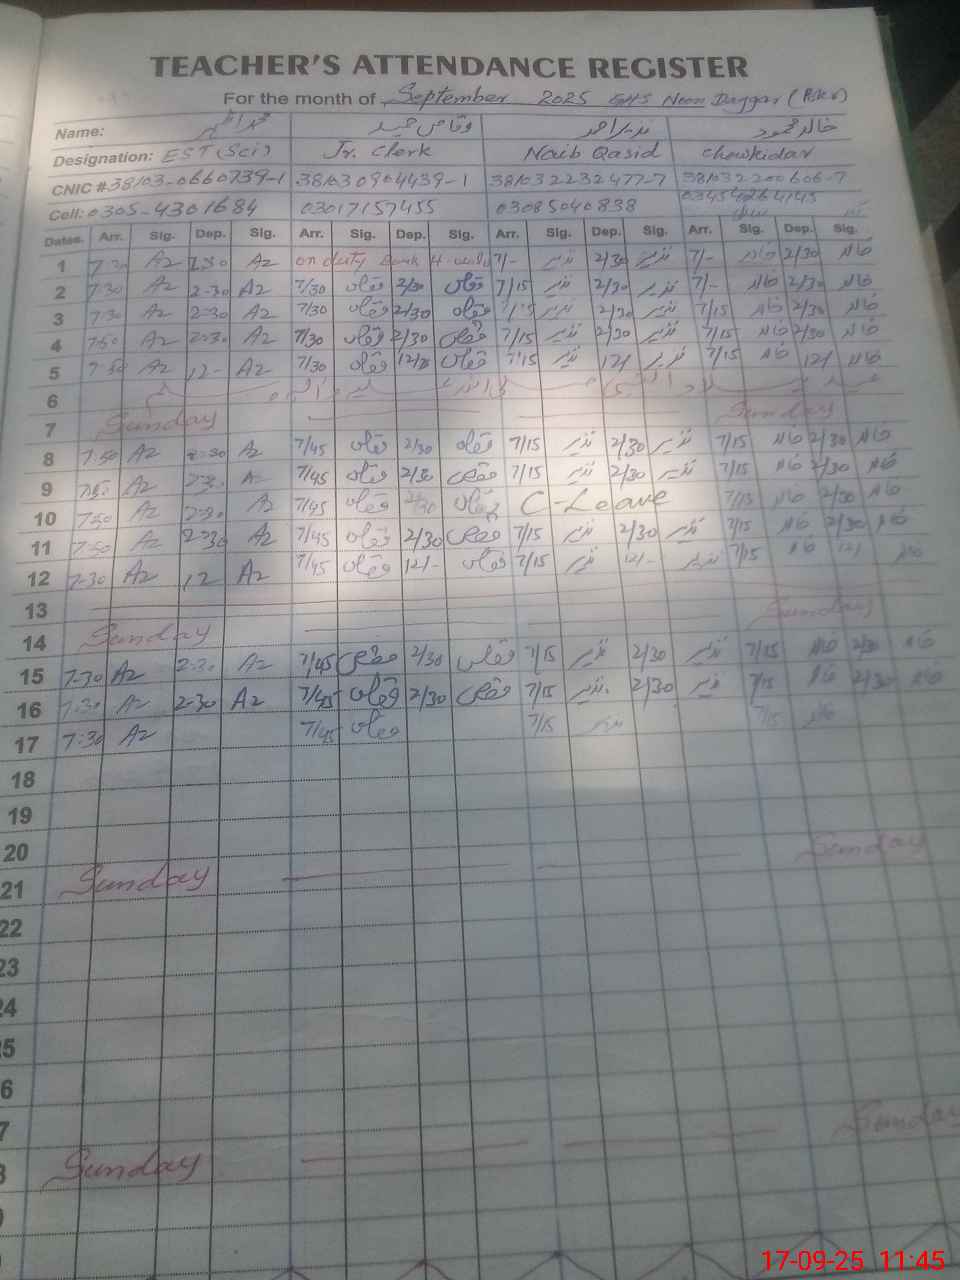 TEACHER'S ATTENDANCE REGISTER
For the month of September 2025 GHS Noon Daggar
Name: وقاص حمید نذیر احمد خالد محمود
Designation: EST (Sci) Jr. Clerk Naib Qasid Chowkidar
CNIC # 38103-0660739-1 381030904439-1 3810322324777-7 3810322 00606-7
Cell: 0305-4301684 03017157455 03085040838
Dates. Arr. Sig. Dep. Sig. Arr. Sig. Dep. Sig. Arr. Sig. Dep. Sig. Arr. Sig. Dep. Sig.
1 7-30 Az 2-30 Az on duty Bank 7/- نذیر 2/30 نذیر 7/- خالد 2/30 خالد
2 7-30 Az 2-30 Az 7/30 وقاص 2/30 وقاص 7/15 نذیر 2/30 نذیر 7/- خالد 2/30 خالد
3 7-30 Az 2-30 Az 7/30 وقاص 2/30 وقاص 7/15 نذیر 2/30 نذیر 7/15 خالد 2/30 خالد
4 7-50 Az 2-30 Az 7/30 وقاص 2/30 وقاص 7/15 نذیر 2/30 نذیر 7/15 خالد 2/30 خالد
5 7-50 Az 12- Az 7/30 وقاص وقاص 7/15 نذیر 12/ نذیر 7/15 خالد 12/ خالد
6
7 Sunday Sunday
8 7-50 Az 2-30 Az 7/45 وقاص 2/30 وقاص 7/15 نذیر 2/30 نذیر 7/15 خالد 2/30 خالد
9 7-50 Az 2-30 Az 7/45 وقاص 2/30 وقاص 7/15 نذیر 2/30 نذیر 7/15 خالد 2/30 خالد
10 7-50 Az 2-30 Az 7/45 وقاص 2/30 وقاص C-Leave 7/15 خالد 2/30 خالد
11 7-50 Az 2-30 Az 7/45 وقاص 2/30 وقاص 7/15 نذیر 2/30 نذیر 7/15 خالد 2/30 خالد
12 7-30 Az 12 Az 7/45 وقاص 12/- وقاص 7/15 نذیر 12/- نذیر 7/15 خالد 12/ خالد
13 Sunday
14 Sunday
15 7-30 Az 2-30 Az 7/45 وقاص 2/30 وقاص 7/15 نذیر 2/30 نذیر 7/15 خالد 2/30 خالد
16 7-30 Az 2-30 Az 7/45 وقاص 2/30 وقاص 7/15 نذیر 2/30 نذیر 7/15 خالد 2/30 خالد
17 7:30 Az 7/45 وقاص 7/15 نذیر 7/15 خالد
18
19
20 Sunday
21 Sunday
22
23
24
5
6
7 Sunday
8 Sunday
17-09-25 11:45